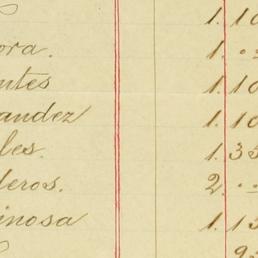 1.10
ora. 1...
ntes 1.10
andez 1.10
les. 1.35
deros. 2...
inosa 1.15